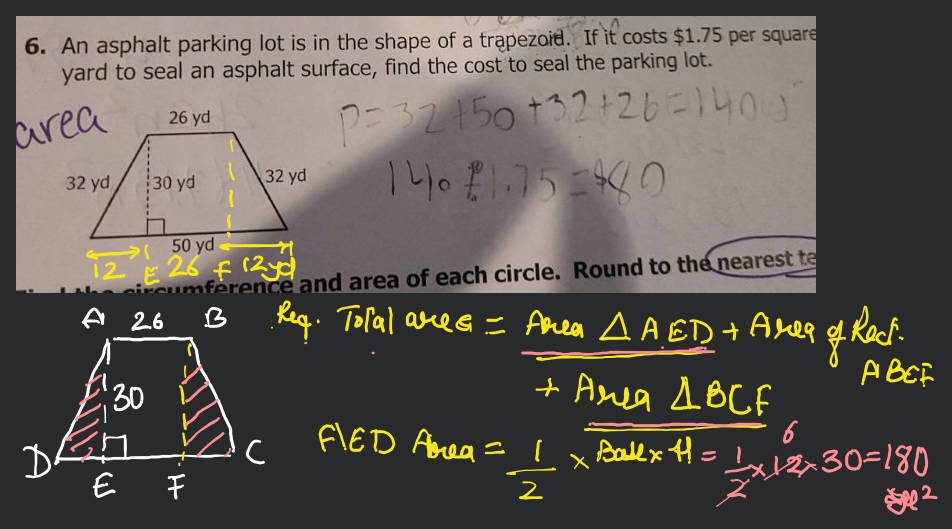 6. An asphalt parking lot is in the shape of a trapezoid. If it costs $1.75 per square
yard to seal an asphalt surface, find the cost to seal the parking lot.
area
26 yd
P=32+50+32+26=140
32 yd
30 yd
32 yd
140 1.75=$80
50 yd
12 E 26 F 12yd
circumference and area of each circle. Round to the nearest te
A 26 B
Req. Total area = Area △AED + Area of Rect.
ABEF
+ Area △BCF
30
D
C
E F
AED Area = 1/2 × Base × H = 1/2 × 12 × 30 = 180
6